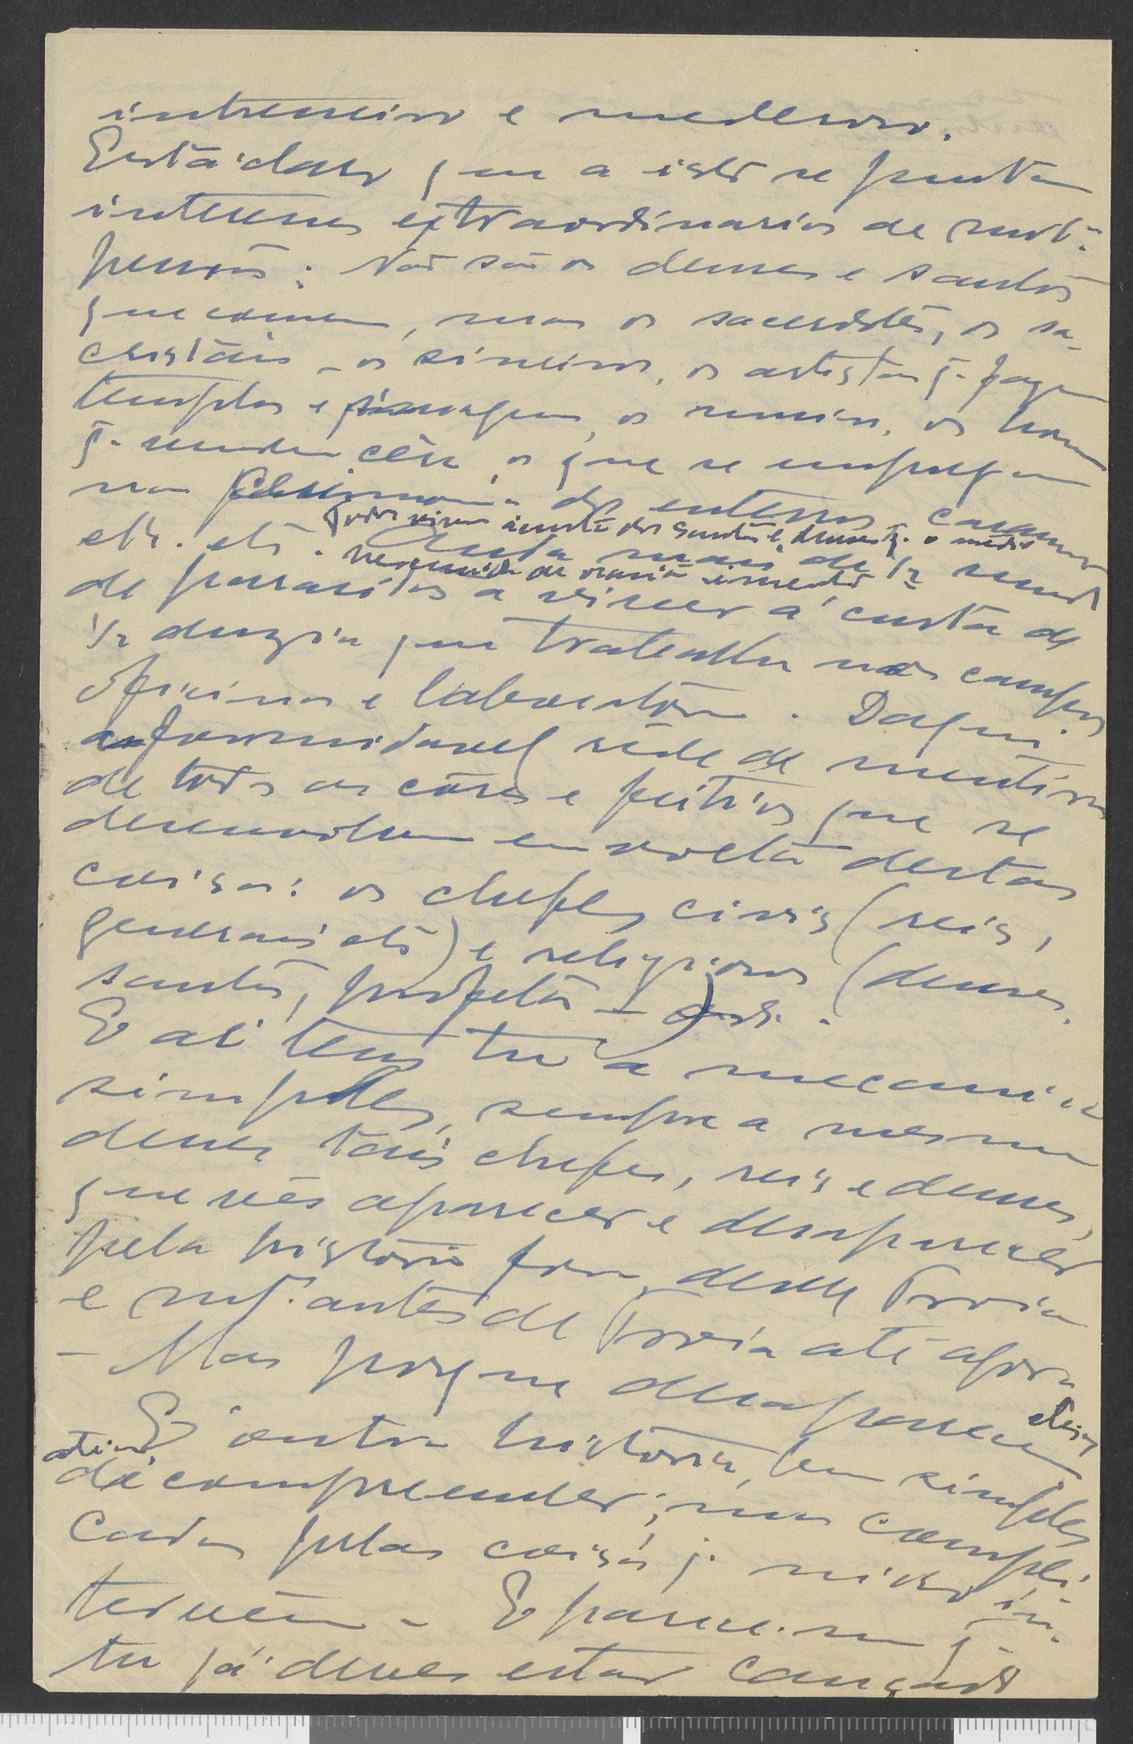 interesseiro e medroso.
Está claro que a isto se juntam
interesses extraordinarios de mtªs
pessoas: Não são os deuses e santos
que comem, mas os sacerdotes, os sa-
cristãis, os sineiros, os artistas q. fazem
templos e imagens, os os homens
q. vendem cêra, os que se empregam
nas dos enterros, casamentos
Todos vivem á custa dos santos e deuses q. o mêdo
etc. etc. Anda mais de ½ mundo
de parasitas a viver á custa de
½ duzia que trabalha nos campos
oficinas e laboratórios. Daqui
a formidavel rêde de mentiras
de todas as côres e feitios que se
desenvolvem em volta destas
coisas: os chefes civis (reis,
generais etc) e religiosos (deuses,
santos, profetas — etc).
E aí tens tu a mecanica
simples, sempre a mesma
desses tais chefes, reis e deuses,
que vês aparecer e desaparecer
pela história fora, desde Troia
e mtº antes de Troia até agora
— Mas porque desaparecem
E' outra história, bem simples
de compreender, mas compli-
cada pelas coisas q. nisso in-
tervêm. E parece-me q.
tu já deves estar cançado